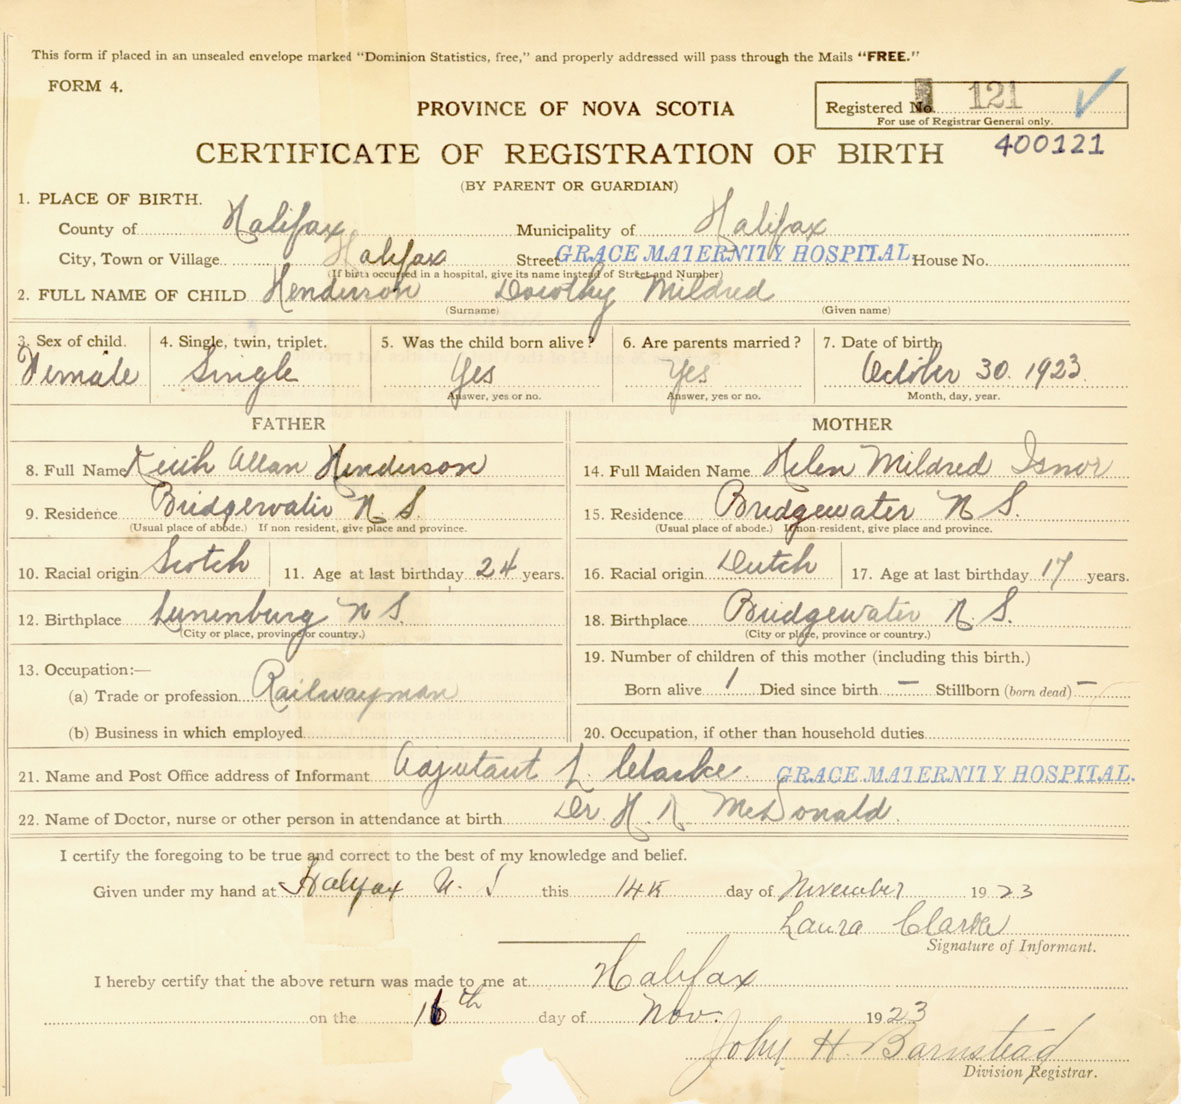 This form if placed in an unsealed envelope marked "Dominion Statistics, free," and properly addressed will pass through the Mails "FREE."
FORM 4.
PROVINCE OF NOVA SCOTIA
Registered No. 121
For use of Registrar General only.
400121
CERTIFICATE OF REGISTRATION OF BIRTH
(BY PARENT OR GUARDIAN)
1. PLACE OF BIRTH.
County of Halifax Municipality of Halifax
City, Town or Village Halifax Street GRACE MATERNITY HOSPITAL. House No.
(If birth occurred in a hospital, give its name instead of Street and Number)
2. FULL NAME OF CHILD Henderson Dorothy Mildred
(Surname) (Given name)
3. Sex of child. 4. Single, twin, triplet. 5. Was the child born alive? 6. Are parents married? 7. Date of birth
Female Single Yes Yes October 30. 1923.
Answer, yes or no. Answer, yes or no. Month, day, year.
FATHER MOTHER
8. Full Name Keith Allan Henderson 14. Full Maiden Name Helen Mildred Isnor
9. Residence Bridgewater N. S. 15. Residence Bridgewater N S.
(Usual place of abode.) If non resident, give place and province. (Usual place of abode.) If non-resident, give place and province.
10. Racial origin Scotch 11. Age at last birthday 24 years. 16. Racial origin Dutch 17. Age at last birthday 17 years.
12. Birthplace Lunenburg N S. 18. Birthplace Bridgewater N. S.
(City or place, province or country.) (City or place, province or country.)
13. Occupation:— 19. Number of children of this mother (including this birth.)
(a) Trade or profession Railwayman Born alive 1 Died since birth — Stillborn (born dead) —
(b) Business in which employed 20. Occupation, if other than household duties
21. Name and Post Office address of Informant Adjutant L. Clarke. GRACE MATERNITY HOSPITAL.
22. Name of Doctor, nurse or other person in attendance at birth Dr. H. K. McDonald.
I certify the foregoing to be true and correct to the best of my knowledge and belief.
Given under my hand at Halifax N. S this 14th day of November 1923
Laura Clarke
Signature of Informant.
I hereby certify that the above return was made to me at Halifax
on the 16th day of Nov. 1923
John H. Barnstead
Division Registrar.